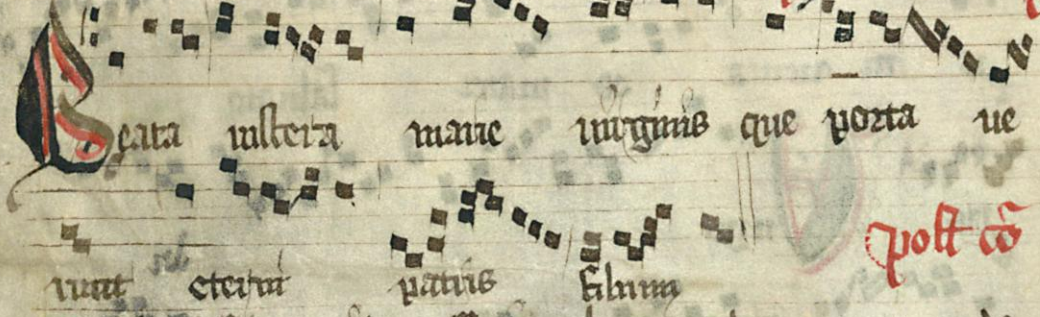 Beata viscera marie virginis que porta ue
runt eterni patris filium
post cō